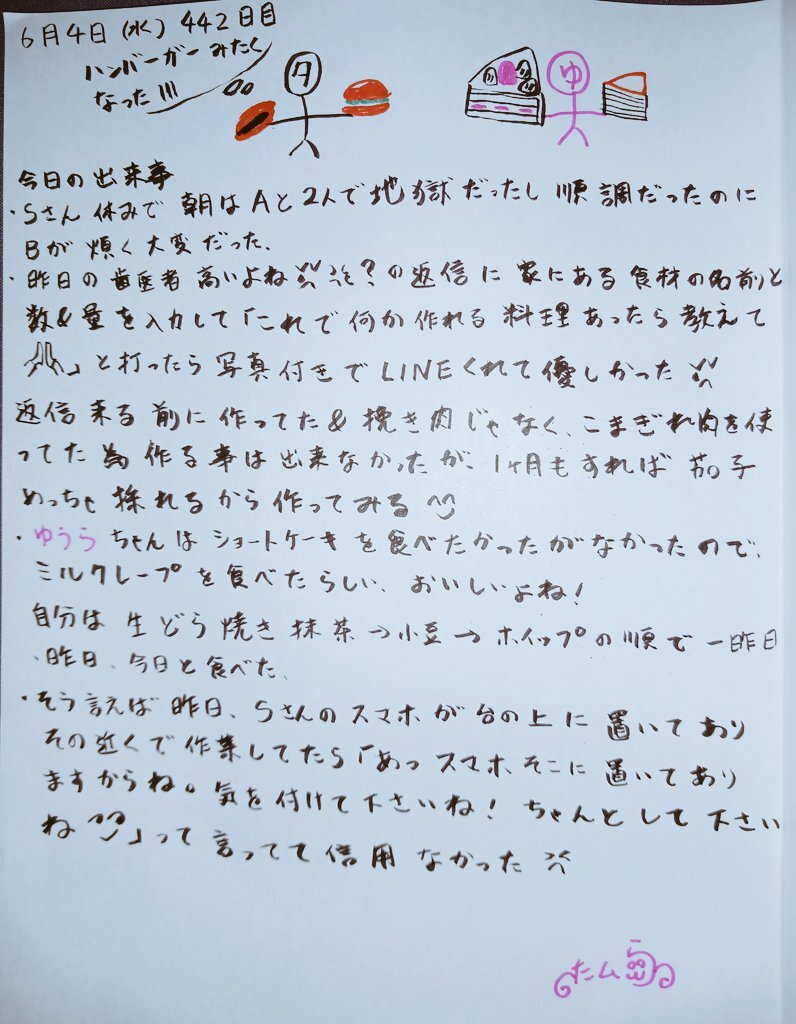 6月4日(水) 442日目
ハンバーガーみたく
なった!!!
タ
ゆ
今日の出来事
・Sさん休みで朝はAと2人で地獄だったし順調だったのに
Bが煩く大変だった.
・昨日の歯医者高いよね?の返信に家にある食材の名前と
数&量を入力して「これで何か作れる料理あったら教えて
🙏」と打ったら写真付きでLINEくれて優しかった
返信来る前に作ってた&挽き肉じゃなく、こまぎれ肉を使
ってた為作る事は出来なかったが、1ヶ月もすれば茄子
めっちゃ採れるから作ってみる
・ゆうらちゃんはショートケーキを食べたかったがなかったので、
ミルクレープを食べたらしい、おいしいよね!
自分は生どら焼き抹茶→小豆→ホイップの順で一昨日
、昨日、今日と食べた、
・そう言えば昨日、Sさんのスマホが台の上に置いてあり
その近くで作業してたら「あっスマホそこに置いてあり
ますからね。気を付けて下さいね!ちゃんとして下さい
ね」って言ってて信用なかった
たム